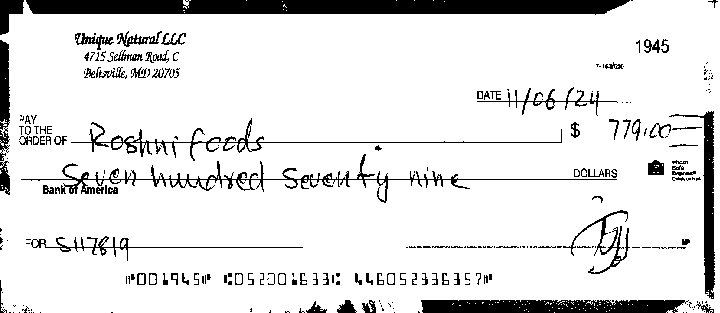 Unique Natural LLC
4715 Sellman Road, C
Beltsville, MD 20705
1945
DATE 11/06/24
PAY
TO THE
ORDER OF Roshni foods $ 779.00
Seven hundred seventy nine DOLLARS
Bank of America
FOR S117819
⑈001945⑈ ⑆052001633⑆ 446052336357⑈